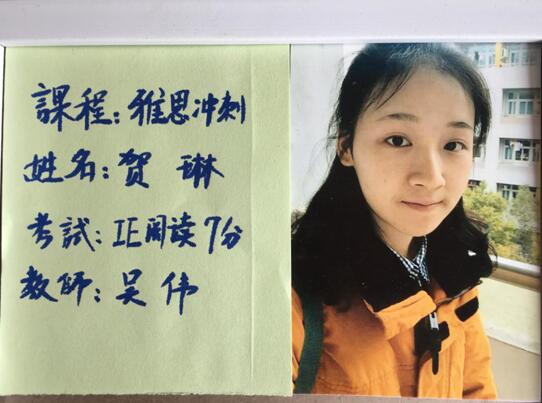 課程：雅思冲刺
姓名：贺 琳
考試：IE阅读7分
教師：吴 伟